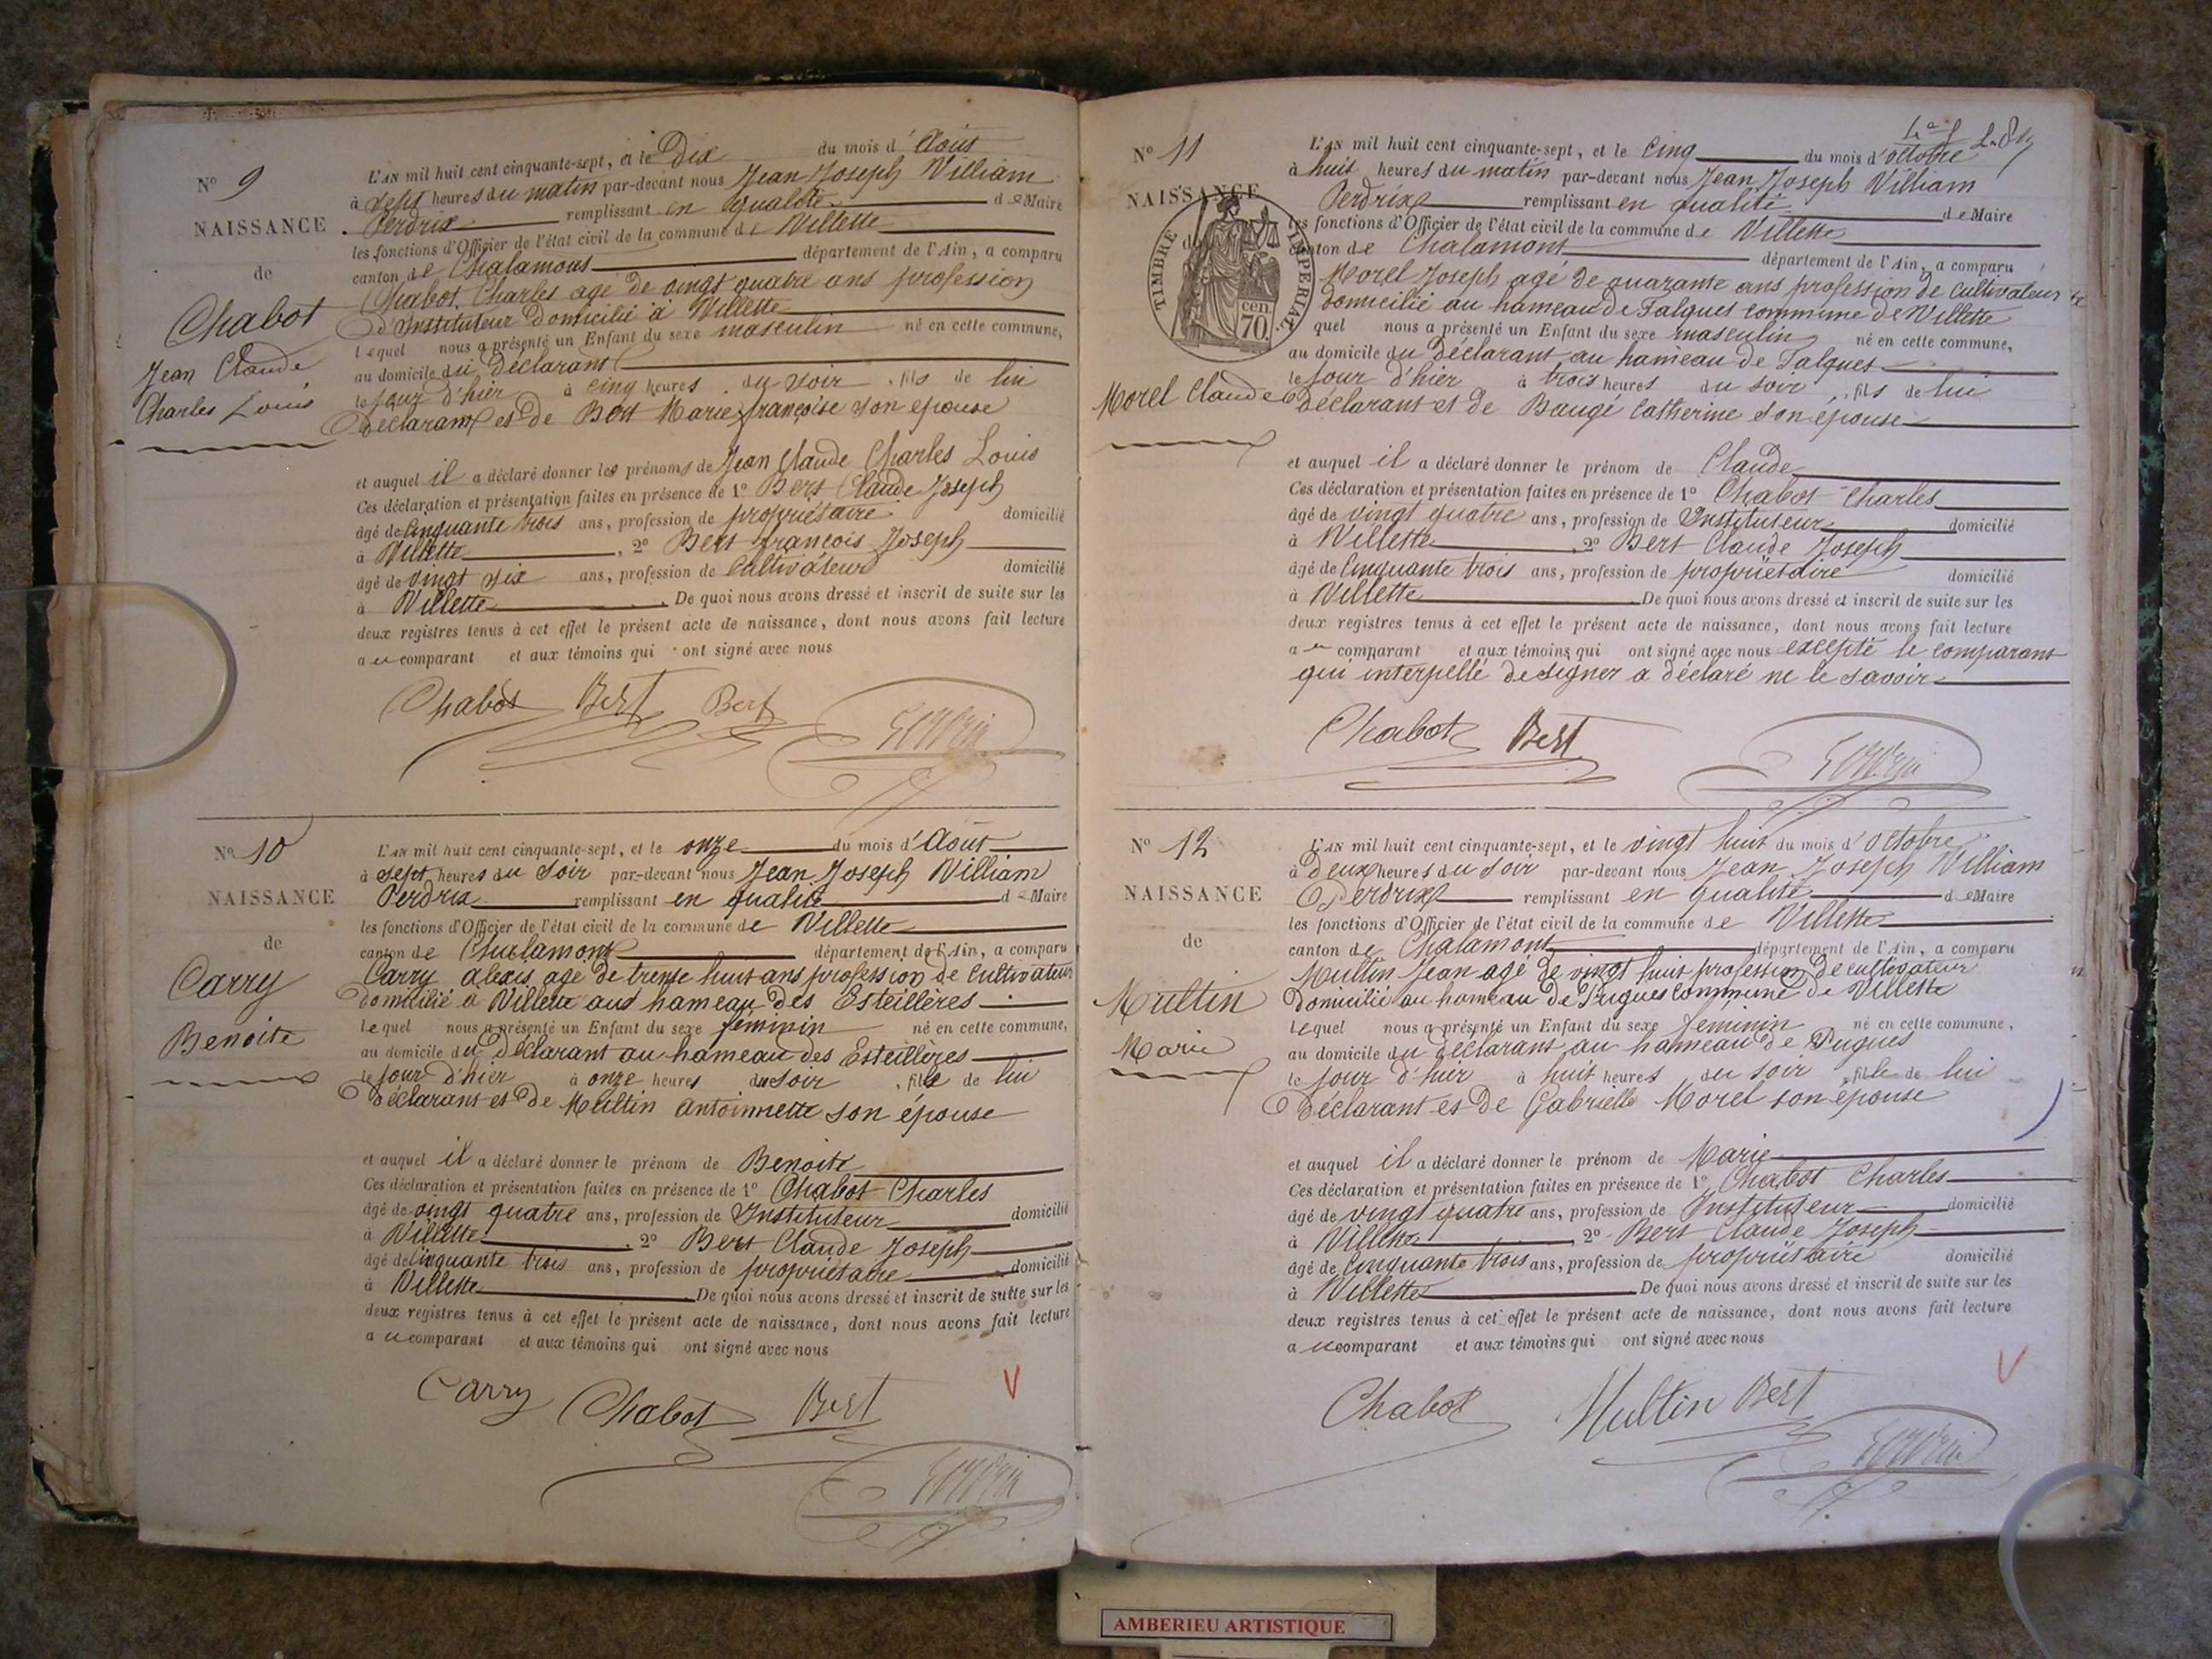 N° 9
NAISSANCE
de
Chabot
Jean Claude
Charles Louis
L'AN mil huit cent cinquante-sept, et le Dix du mois d'Août
à sept heures du matin par-devant nous Jean Joseph William
Perdrix remplissant en qualité de Maire
les fonctions d'Officier de l'état civil de la commune de Villette
canton de Chalamont département de l'Ain, a comparu
Chabot Charles agé de vingt quatre ans profession
d'Instituteur domicilié à Villette
lequel nous a présenté un Enfant du sexe masculin né en cette commune,
au domicile du Déclarant
le jour d'hier à cinq heures du soir, fils de lui
Déclarant et de Bert Marie françoise son épouse
et auquel il a déclaré donner les prénoms de Jean Claude Charles Louis
Ces déclaration et présentation faites en présence de 1° Bert Claude Joseph
âgé de Cinquante trois ans, profession de propriétaire domicilié
à Villette, 2° Bert françois Joseph
âgé de vingt six ans, profession de Cultivateur domicilié
à Villette. De quoi nous avons dressé et inscrit de suite sur les
deux registres tenus à cet effet le présent acte de naissance, dont nous avons fait lecture
au comparant et aux témoins qui ont signé avec nous
Chabot Bert Bert
N° 10
NAISSANCE
de
Carry
Benoite
L'AN mil huit cent cinquante-sept, et le onze du mois d'Août
à sept heures du soir par-devant nous Jean Joseph William
Perdrix remplissant en qualité de Maire
les fonctions d'Officier de l'état civil de la commune de Villette
canton de Chalamont département de l'Ain, a comparu
Carry alexis agé de trente huit ans profession de Cultivateur
domicilié à Villette aud hameau des Esteillères
lequel nous a présenté un Enfant du sexe féminin né en cette commune,
au domicile du Déclarant au hameau des Esteillères
le jour d'hier à onze heures du soir, fille de lui
Déclarant et de Multin Antoinnette son épouse
et auquel il a déclaré donner le prénom de Benoite
Ces déclaration et présentation faites en présence de 1° Chabot Charles
âgé de vingt quatre ans, profession de Instituteur domicilié
à Villette, 2° Bert Claude Joseph
âgé de Cinquante trois ans, profession de propriétaire domicilié
à Villette. De quoi nous avons dressé et inscrit de suite sur les
deux registres tenus à cet effet le présent acte de naissance, dont nous avons fait lecture
au comparant et aux témoins qui ont signé avec nous
Carry Chabot Bert
N° 11
NAISSANCE
de
TIMBRE IMPERIAL
70 cen.
Morel Claude
L'AN mil huit cent cinquante-sept, et le Cinq du mois d'octobre
à huit heures du matin par-devant nous Jean Joseph William
Perdrix remplissant en qualité de Maire
les fonctions d'Officier de l'état civil de la commune de Villette
canton de Chalamont département de l'Ain, a comparu
Morel Joseph agé de quarante ans profession de cultivateur
domicilié au hameau de Falques commune de Villette le
quel nous a présenté un Enfant du sexe masculin né en cette commune,
au domicile du Déclarant au hameau de Falques
le jour d'hier à trois heures du soir, fils de lui
Déclarant et de Baugé Catherine son épouse
et auquel il a déclaré donner le prénom de Claude
Ces déclaration et présentation faites en présence de 1° Chabot Charles
âgé de vingt quatre ans, profession de Instituteur domicilié
à Villette, 2° Bert Claude Joseph
âgé de Cinquante trois ans, profession de propriétaire domicilié
à Villette De quoi nous avons dressé et inscrit de suite sur les
deux registres tenus à cet effet le présent acte de naissance, dont nous avons fait lecture
au comparant et aux témoins qui ont signé avec nous excepté le comparant
qui interpellé de signer a déclaré ne le savoir
Chabot Bert
N° 12
NAISSANCE
de
Multin
Marie
L'AN mil huit cent cinquante-sept, et le vingt huit du mois d'octobre
à Deux heures du soir par-devant nous Jean Joseph William
Perdrix remplissant en qualité de Maire
les fonctions d'Officier de l'état civil de la commune de Villette
canton de Chalamont département de l'Ain, a comparu
Multin Jean agé de vingt huit profession de cultivateur
Domicilié au hameau de commune de Villette
Lequel nous a présenté un Enfant du sexe féminin né en cette commune,
au domicile du déclarant au hameau de
le jour d'hier à huit heures du soir, fille de lui
Déclarant et de Gabrielle Morel son épouse
et auquel il a déclaré donner le prénom de Marie
Ces déclaration et présentation faites en présence de 1° Chabot Charles
âgé de vingt quatre ans, profession de Instituteur domicilié
à Villette, 2° Bert Claude Joseph
âgé de Cinquante trois ans, profession de propriétaire domicilié
à Villette De quoi nous avons dressé et inscrit de suite sur les
deux registres tenus à cet effet le présent acte de naissance, dont nous avons fait lecture
au comparant et aux témoins qui ont signé avec nous
Chabot Multin Bert
AMBERIEU ARTISTIQUE